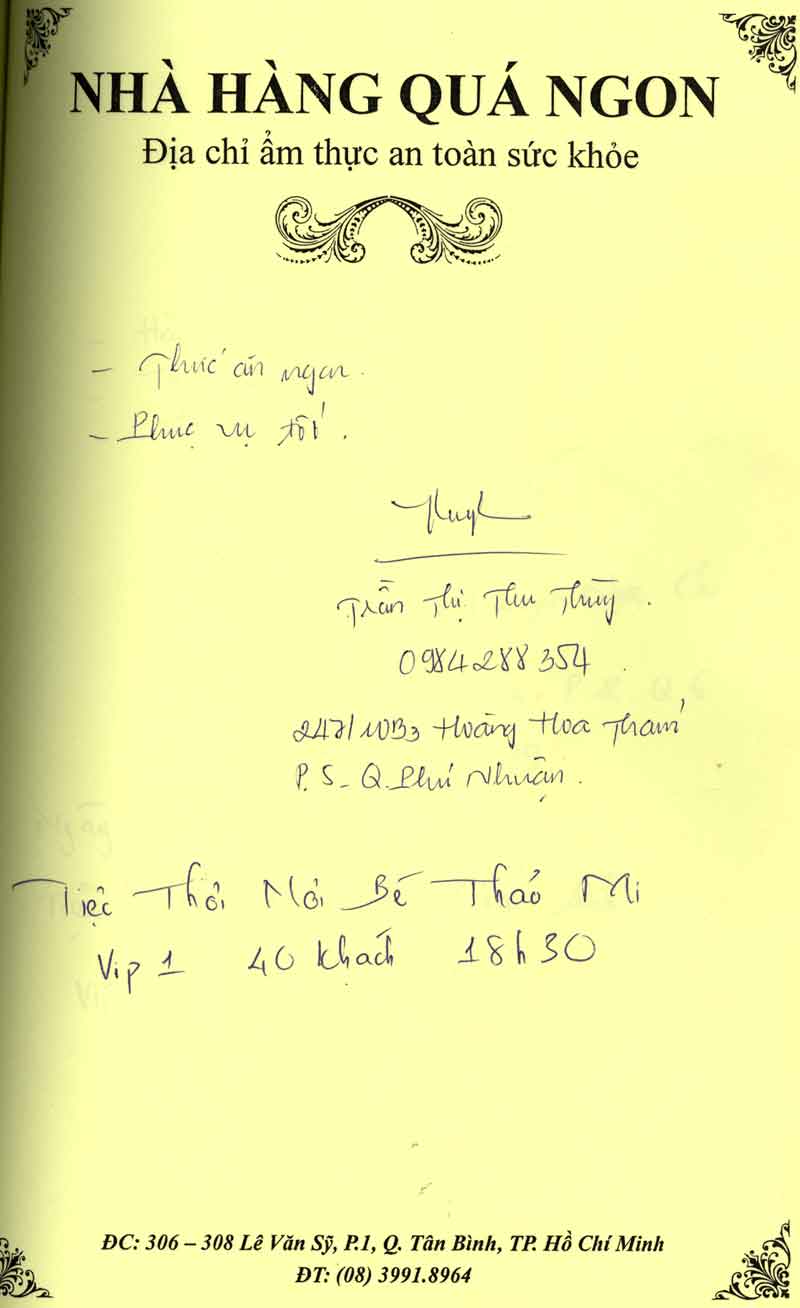 NHÀ HÀNG QUÁ NGON
Địa chỉ ẩm thực an toàn sức khỏe
- Thức ăn ngon.
- Phục vụ tốt.
Trần Thị Thu Thùy.
0984288354.
247/10B3 Hoàng Hoa Thám
P. 5 - Q. Phú Nhuận.
Tiệc Thôi Nôi Bé Thảo Mi
Vip 1 40 khách 18h30
ĐC: 306 – 308 Lê Văn Sỹ, P.1, Q. Tân Bình, TP. Hồ Chí Minh
ĐT: (08) 3991.8964